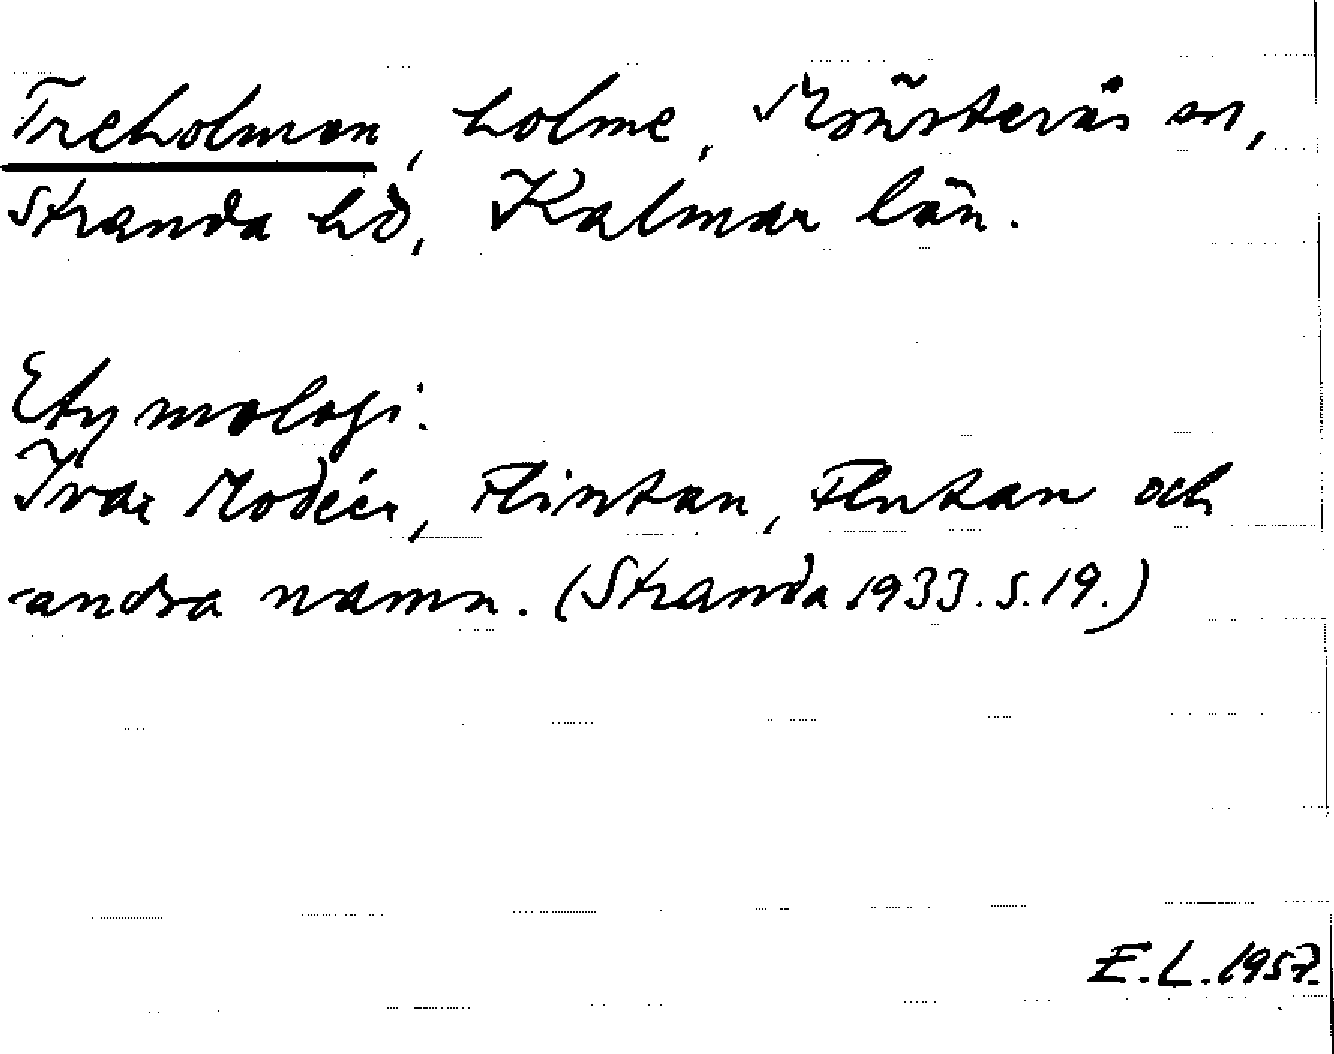 Treholmen, holme, Mönsterås sn,
Stranda hd, Kalmar län.
Etymologi:
Ivar Modéer, Flintan, Flutan och
andra namn. (Stranda 1933. S. 19.)
E. L. 1957.